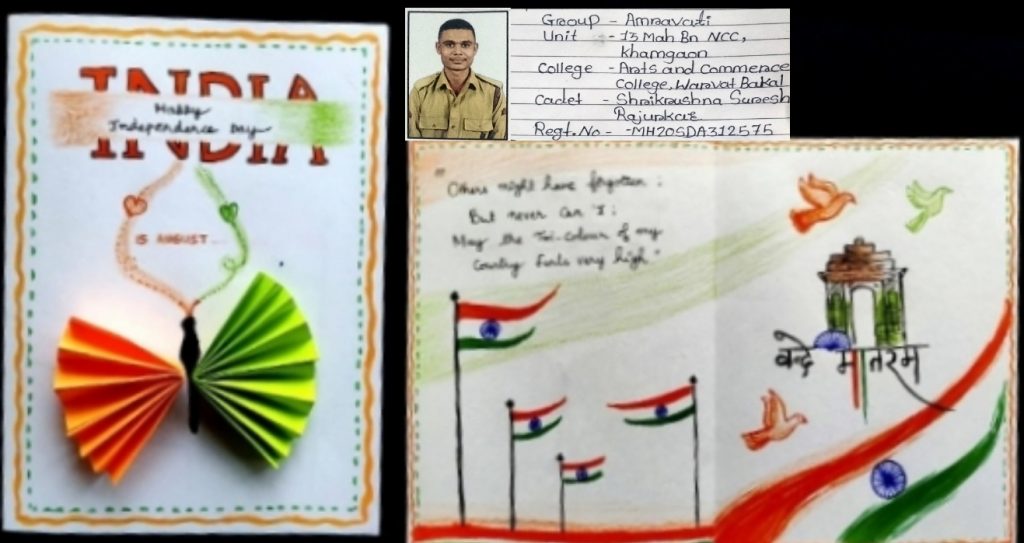 INDIA
Happy
Independence Day
15 AUGUST...
Group - Amravati
Unit - 13 Mah Bn NCC,
Khamgaon
College - Arts and Commerce
College, Warvat Bakal
Cadet - Shrikrushna Suresh
Rajunkar
Regt.No - -MH20SDA312575
"Others might have forgotten :
But never can I :
May the Tri-colour of my
Country furls very high"
वन्दे मातरम